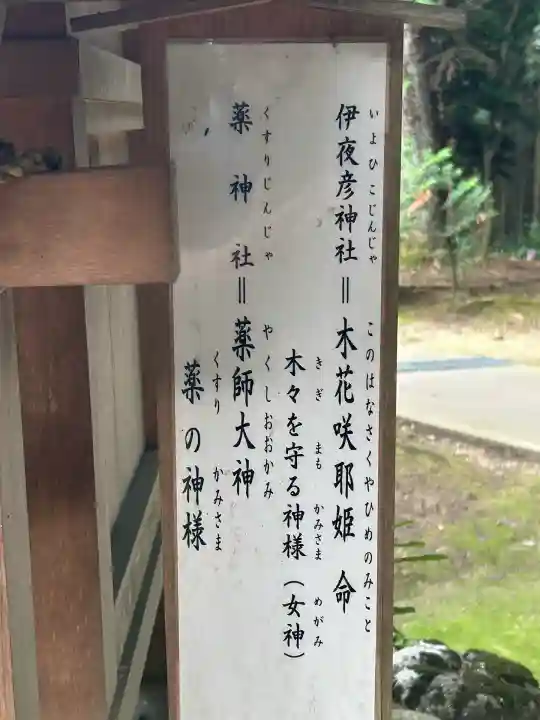 いよひこじんじゃ このはなさくやひめのみこと
伊夜彦神社=木花咲耶姫 命
きぎ まも かみさま めがみ
木々を守る神様(女神)
くすりじんじゃ やくしおおかみ
薬神社=薬師大神
くすり かみさま
薬の神様